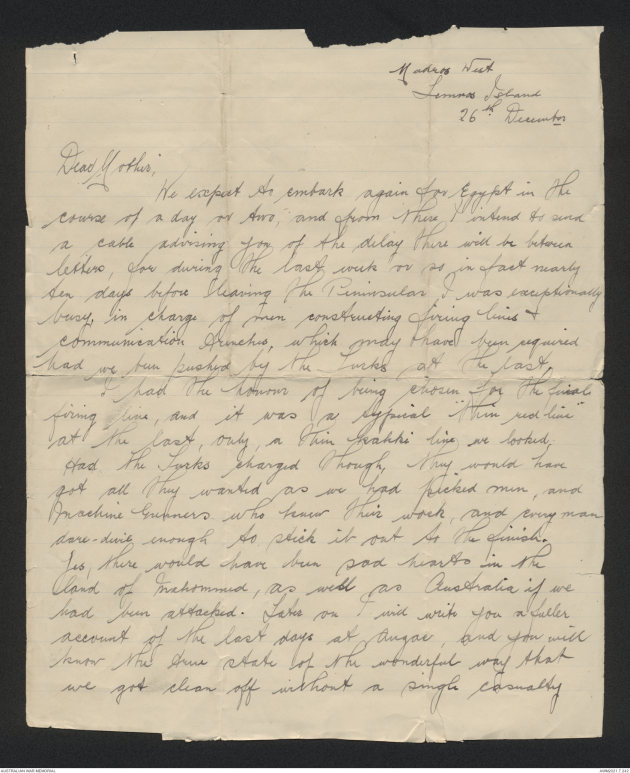 Mudros West
Lemnos Island
26th December
Dear Mother,
We expect to embark again for Egypt in the
course of a day or two, and from there I intend to send
a cable advising you of the delay there will be between
letters, for during the last week or so in fact nearly
ten days before leaving the Peninsular, I was exceptionally
busy, in charge of men constructing firing lines &
communication trenches, which may have been required
had we been pushed by the Turks at the last.
I had the honour of being chosen for the final
firing line, and it was a typical "thin red line"
at the last, only, a thin kakhi line we looked.
Had the Turks charged though, they would have
got all they wanted as we had picked men, and
Machine Gunners who knew their work, and every man
dare-devil enough to stick it out to the finish.
Yes, there would have been sad hearts in the
land of Mahommed, as well as Australia if we
had been attacked. Later on I will write you a fuller
account of the last days at Anzac, and you will
know the true state of the wonderful way that
we got clean off without a single casualty
AUSTRALIAN WAR MEMORIAL
AWM2021.7.242